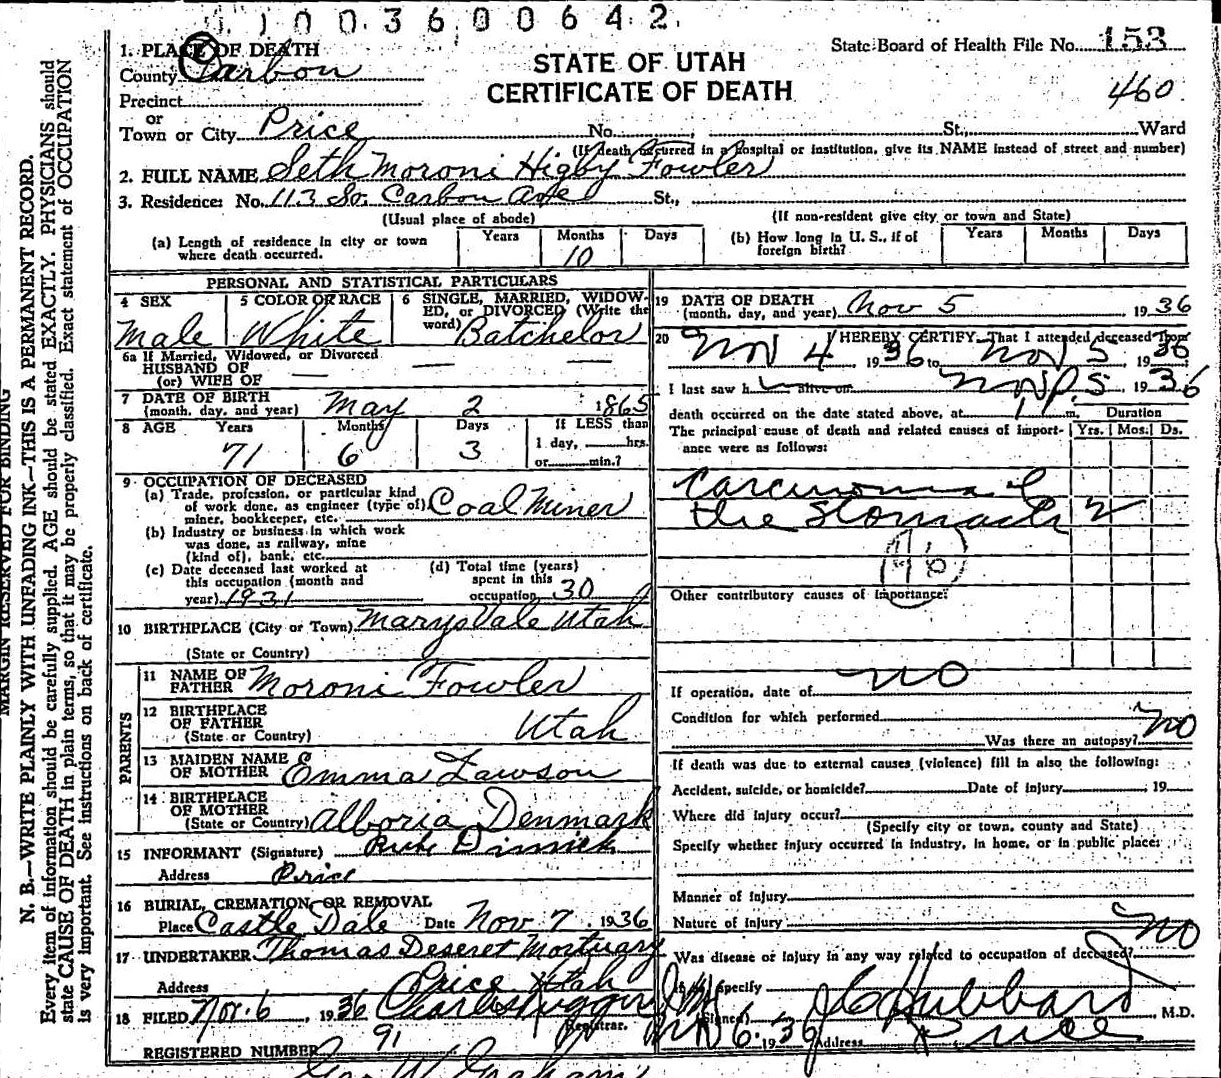 1003600642
1. PLACE OF DEATH
State Board of Health File No. 153
County Carbon
STATE OF UTAH
CERTIFICATE OF DEATH
460
Precinct
or
Town or City Price No. , St., Ward
(If death occurred in a hospital or institution, give its NAME instead of street and number)
2. FULL NAME Seth Moroni Higby Fowler
3. Residence: No. 113 So. Carbon Ave St.,
(Usual place of abode) (If non-resident give city or town and State)
(a) Length of residence in city or town where death occurred. Years Months 10 Days
(b) How long in U. S., if of foreign birth? Years Months Days
PERSONAL AND STATISTICAL PARTICULARS
4 SEX Male
5 COLOR OR RACE White
6 SINGLE, MARRIED, WIDOWED, or DIVORCED (Write the word) Batchelor
6a If Married, Widowed, or Divorced
HUSBAND OF —
(or) WIFE OF — —
7 DATE OF BIRTH
(month, day, and year) May 2 1865
8 AGE Years Months Days If LESS than
71 6 3 1 day, hrs.
or min.?
9 OCCUPATION OF DECEASED
(a) Trade, profession, or particular kind
of work done, as engineer (type of), Coal Miner
miner, bookkeeper, etc.
(b) Industry or business in which work
was done, as railway, mine
(kind of), bank, etc.
(c) Date deceased last worked at
this occupation (month and
year) 1931
(d) Total time (years)
spent in this
occupation 30
10 BIRTHPLACE (City or Town) Marysvale Utah
(State or Country)
PARENTS
11 NAME OF
FATHER Moroni Fowler
12 BIRTHPLACE
OF FATHER
(State or Country) Utah
13 MAIDEN NAME
OF MOTHER Emma Lawson
14 BIRTHPLACE
OF MOTHER
(State or Country) Alboria Denmark
15 INFORMANT (Signature)
Address Price
16 BURIAL, CREMATION, OR REMOVAL
Place Castle Dale Date Nov 7, 1936
17 UNDERTAKER Thomas Deseret Mortuary
Address Price Utah
18 FILED Nov. 6, 1936 Registrar.
REGISTERED NUMBER 91
19 DATE OF DEATH
(month, day, and year) Nov 5 1936
20 I HEREBY CERTIFY, That I attended deceased from
Nov 4 1936 to Nov 5 1936
I last saw h alive on Nov 5, 1936
death occurred on the date stated above, at 1 P. m.
Duration
The principal cause of death and related causes of importance were as follows: Yrs. Mos. Ds.
Carcinoma of
the Stomach 2
46
Other contributory causes of importance:
If operation, date of no
Condition for which performed
Was there an autopsy? no
If death was due to external causes (violence) fill in also the following:
Accident, suicide, or homicide? Date of injury 19
Where did injury occur?
(Specify city or town, county and State)
Specify whether injury occurred in industry, in home, or in public place:
Manner of injury
Nature of injury
Was disease or injury in any way related to occupation of deceased? no
If so, specify
(Signed) J C Hubbard, M.D.
6 1936 Address Price
MARGIN RESERVED FOR BINDING
N. B.—WRITE PLAINLY WITH UNFADING INK—THIS IS A PERMANENT RECORD.
Every item of information should be carefully supplied. AGE should be stated EXACTLY. PHYSICIANS should
state CAUSE OF DEATH in plain terms, so that it may be properly classified. Exact statement of OCCUPATION
is very important. See instructions on back of certificate.